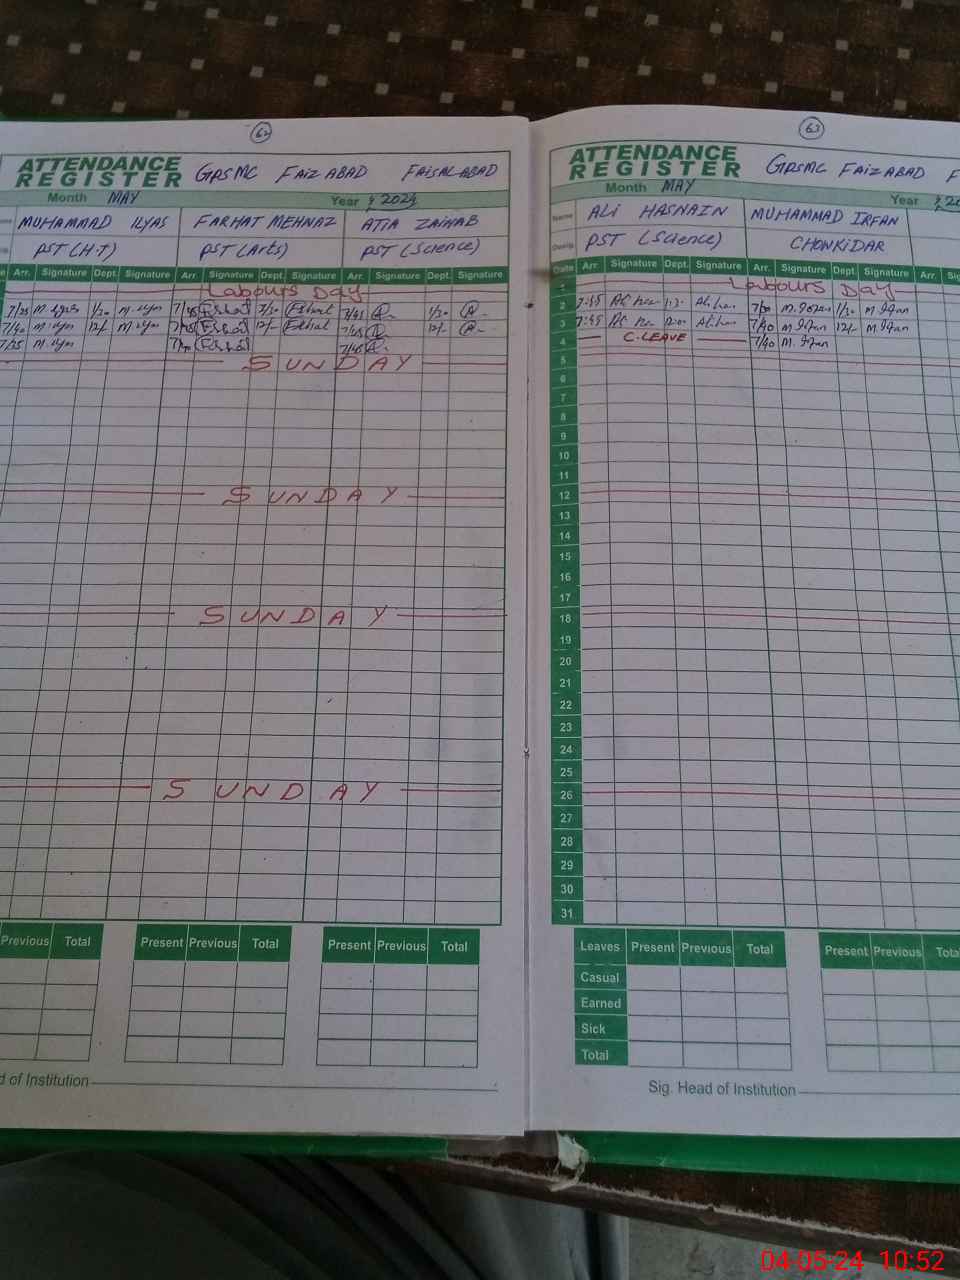 62
ATTENDANCE REGISTER GPSMC FAIZABAD FAISALABAD
Month MAY Year 2024
MUHAMMAD ILYAS FARHAT MEHNAZ ATIA ZAINAB
PST (H.T) PST (Arts) PST (Science)
Arr. Signature Dept. Signature Arr. Signature Dept. Signature Arr. Signature Dept. Signature
Labours Day
7/35 1/30 M. Ilyas 7/45 1/30 7/45 1/30
7/40 M. Ilyas 12/- M. Ilyas 7/45 12/- 7/45 12/-
7/35 M. Ilyas 7/45
SUNDAY
SUNDAY
SUNDAY
SUNDAY
Previous Total Present Previous Total Present Previous Total
d of Institution
63
ATTENDANCE REGISTER GPSMC FAIZABAD F
Month MAY Year
Name ALI HASNAIN MUHAMMAD IRFAN
PST (Science) CHOWKIDAR
Date Arr. Signature Dept. Signature Arr. Signature Dept. Signature Arr.
1 Labours Day
2 7:45 M. Irfan 1/30 M. Irfan
3 7:45 7/40 M. Irfan 12/- M. Irfan
4 C.LEAVE 7/40 M. Irfan
5
6
7
8
9
10
11
12
13
14
15
16
17
18
19
20
21
22
23
24
25
26
27
28
29
30
31
Leaves Present Previous Total Present Previous Tota
Casual
Earned
Sick
Total
Sig. Head of Institution
04-05-24 10:52